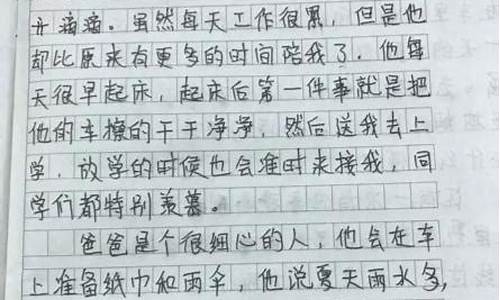 开滴滴。虽然每天工作很累，但是他
却比原来有更多的时间陪我了．他每
天很早起床，起床后第一件事就是把
他的车擦的干干净净，然后送我去上
学，放学的时候也会准时来接我，同
学们都特别羡慕。
爸爸是个很细心的人，他会在车
上准备纸巾和雨伞，他说夏天雨水多，